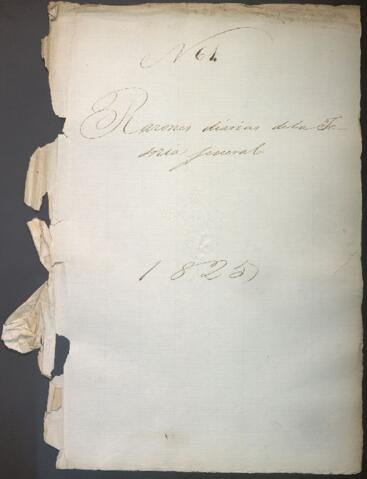 N 61.
Razones diarias de la Te-
soreria general
1825